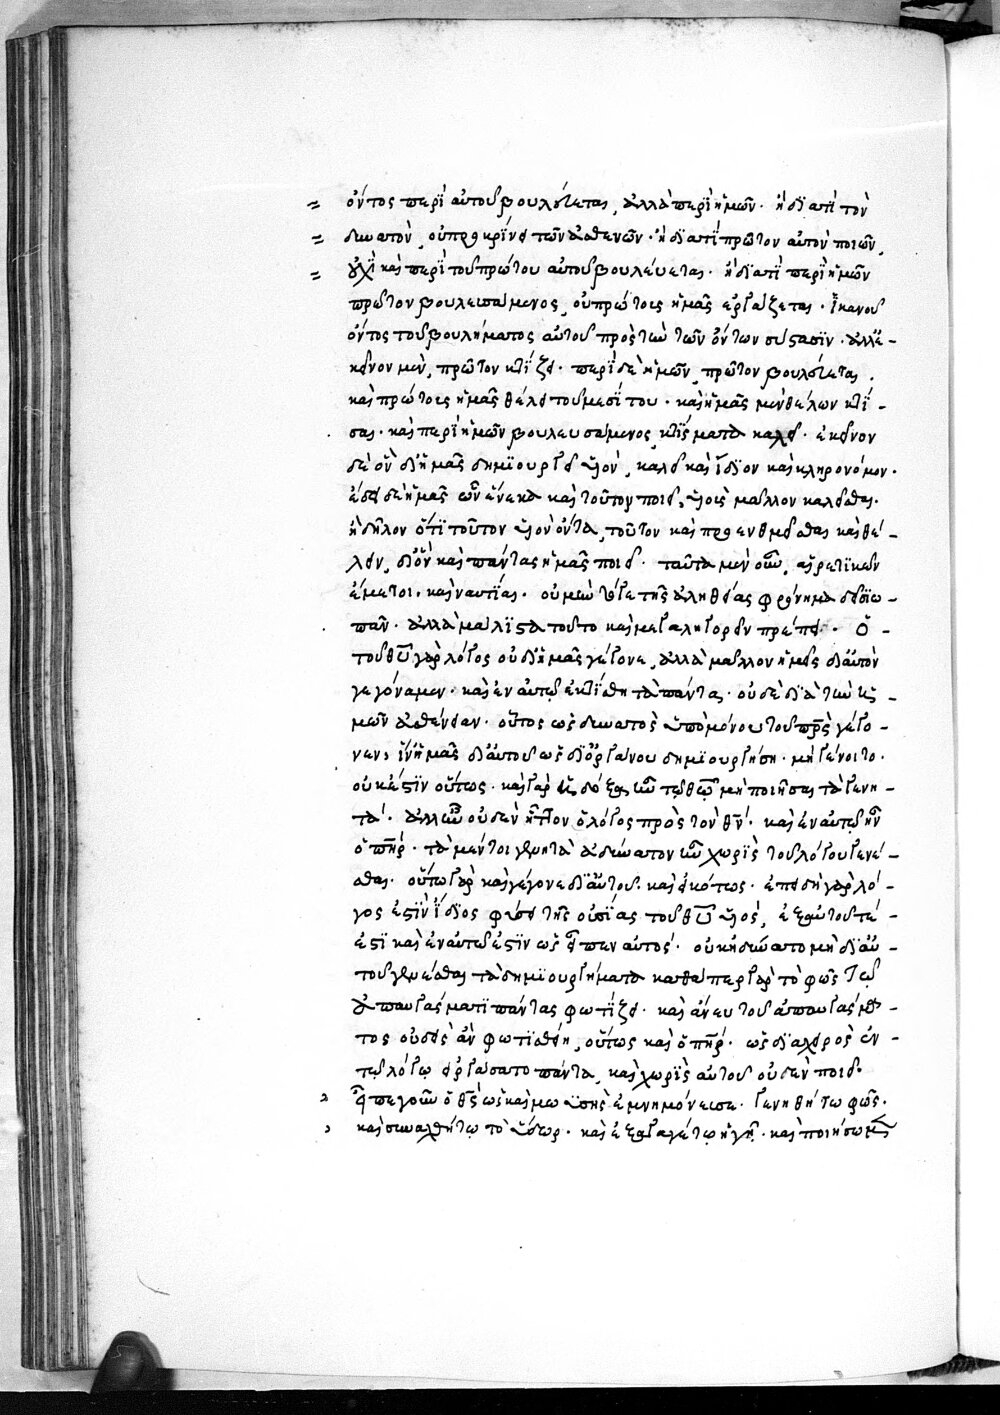 ὄντος περὶ αὐτοῦ βουλεύεται, ἀλλὰ περὶ ἡμῶν· ἢ διατί τὸν
δυνατὸν, οὐ προκρίνει τῶν ἀσθενῶν· ἢ διατί πρῶτον αὐτὸν ποιῶν,
οὐχὶ καὶ περὶ τοῦ πρώτου αὐτοῦ βουλεύεται· ἢ διατί περὶ ἡμῶν
πρῶτον βουλευσάμενος, οὐ πρώτους ἡμᾶς ἐργάζεται· ἱκανοῦ
ὄντος τοῦ βουλήματος αὐτοῦ πρὸς τὴν τῶν ὄντων σύστασιν· ἀλλ' ἐ-
κεῖνον μὲν, πρῶτον κτίζει· περὶ δὲ ἡμῶν, πρῶτον βουλεύεται,
καὶ πρώτους ἡμᾶς θέλει τοῦ μεσίτου· καὶ ἡμᾶς μὲν θέλων κτί-
σαι· καὶ περὶ ἡμῶν βουλευσάμενος, κτίσματα καλεῖ· ἐκεῖνον
δὲ ὃν δι' ἡμᾶς δημιουργεῖ υἱὸν, καλεῖ καὶ ἴδιον καὶ κληρονόμον·
ἔδει δὲ ἡμᾶς ὧν ἕνεκα καὶ τοῦτον ποιεῖ, υἱοὺς μᾶλλον καλεῖσθαι·
ἢ δῆλον ὅτι τοῦτον υἱὸν ὄντα, τοῦτον καὶ προενθυμεῖσθαι καὶ θέ-
λειν, δι' ὃν καὶ πάντας ἡμᾶς ποιεῖ· ταῦτα μὲν οὖν, αἱρετικῶν
ἔμετοι, καὶ ναυτίαι· οὐ μὴν τό γε τῆς ἀληθείας φρόνημα δεῖ σιω-
πᾶν· ἀλλὰ μάλιστα τοῦτο καὶ μεγαληγορεῖν πρέπει· Ὁ -
τοῦ θῦ γὰρ λόγος οὐ δι' ἡμᾶς γέγονε, ἀλλὰ μᾶλλον ἡμεῖς δι' αὐτὸν
γεγόναμεν· καὶ ἐν αὐτῷ ἐκτίσθη τὰ πάντα· οὐδὲ διὰ τὴν ἡ-
μῶν ἀσθένειαν· οὗτος ὡς δυνατὸς ὑπὸ μόνου τοῦ πρς γέγο-
νεν, ἵν' ἡμᾶς δι' αὐτοῦ ὡς δι' ὀργάνου δημιουργήσῃ· μὴ γένοιτο·
οὐκ ἔστιν οὕτως· καὶ γὰρ εἰ δόξαν ἦν τῷ θῶ μὴ ποιῆσαι τὰ γενη-
τὰ· ἀλλ' ἦν οὐδὲν ἧττον ὁ λόγος πρὸς τὸν θν· καὶ ἐν αὐτῷ ἦν
ὁ πηρ· τὰ μέντοι γενητὰ ἀδύνατον ἦν χωρὶς τοῦ λόγου γενέ-
σθαι· οὕτω γὰρ καὶ γέγονε δι' αὐτοῦ· καὶ εἰκότως· ἐπειδὴ γὰρ λό-
γος ἐστὶν ἴδιος φύσει τῆς οὐσίας τοῦ θῦ υἱὸς, ἐξ αὐτοῦ τέ -
ἐστι καὶ ἐν αὐτῷ ἐστιν ὡς εἶπεν αὐτὸς· οὐκ ἠδύνατο μὴ δι' αὐ-
τοῦ γενέσθαι τὰ δημιουργήματα καθάπερ γὰρ τὸ φῶς τῷ
ἀπαυγάσματι πάντας φωτίζει· καὶ ἄνευ τοῦ ἀπαυγάσμα-
τος οὐδεὶς ἂν φωτισθείη, οὕτως καὶ ὁ πηρ· ὡς διὰ χειρὸς ἐν
τῷ λόγῳ εἰργάσατο πάντα, καὶ χωρὶς αὐτοῦ οὐδὲν ποιεῖ·
εἶπε γοῦν ὁ θς ὡς καὶ μωϋσῆς ἐμνημόνευσε· γενηθήτω φῶς·
καὶ συναχθήτω τὸ ὕδωρ· καὶ ἐξαγαγέτω ἡ γῆ· καὶ ποιήσωμεν